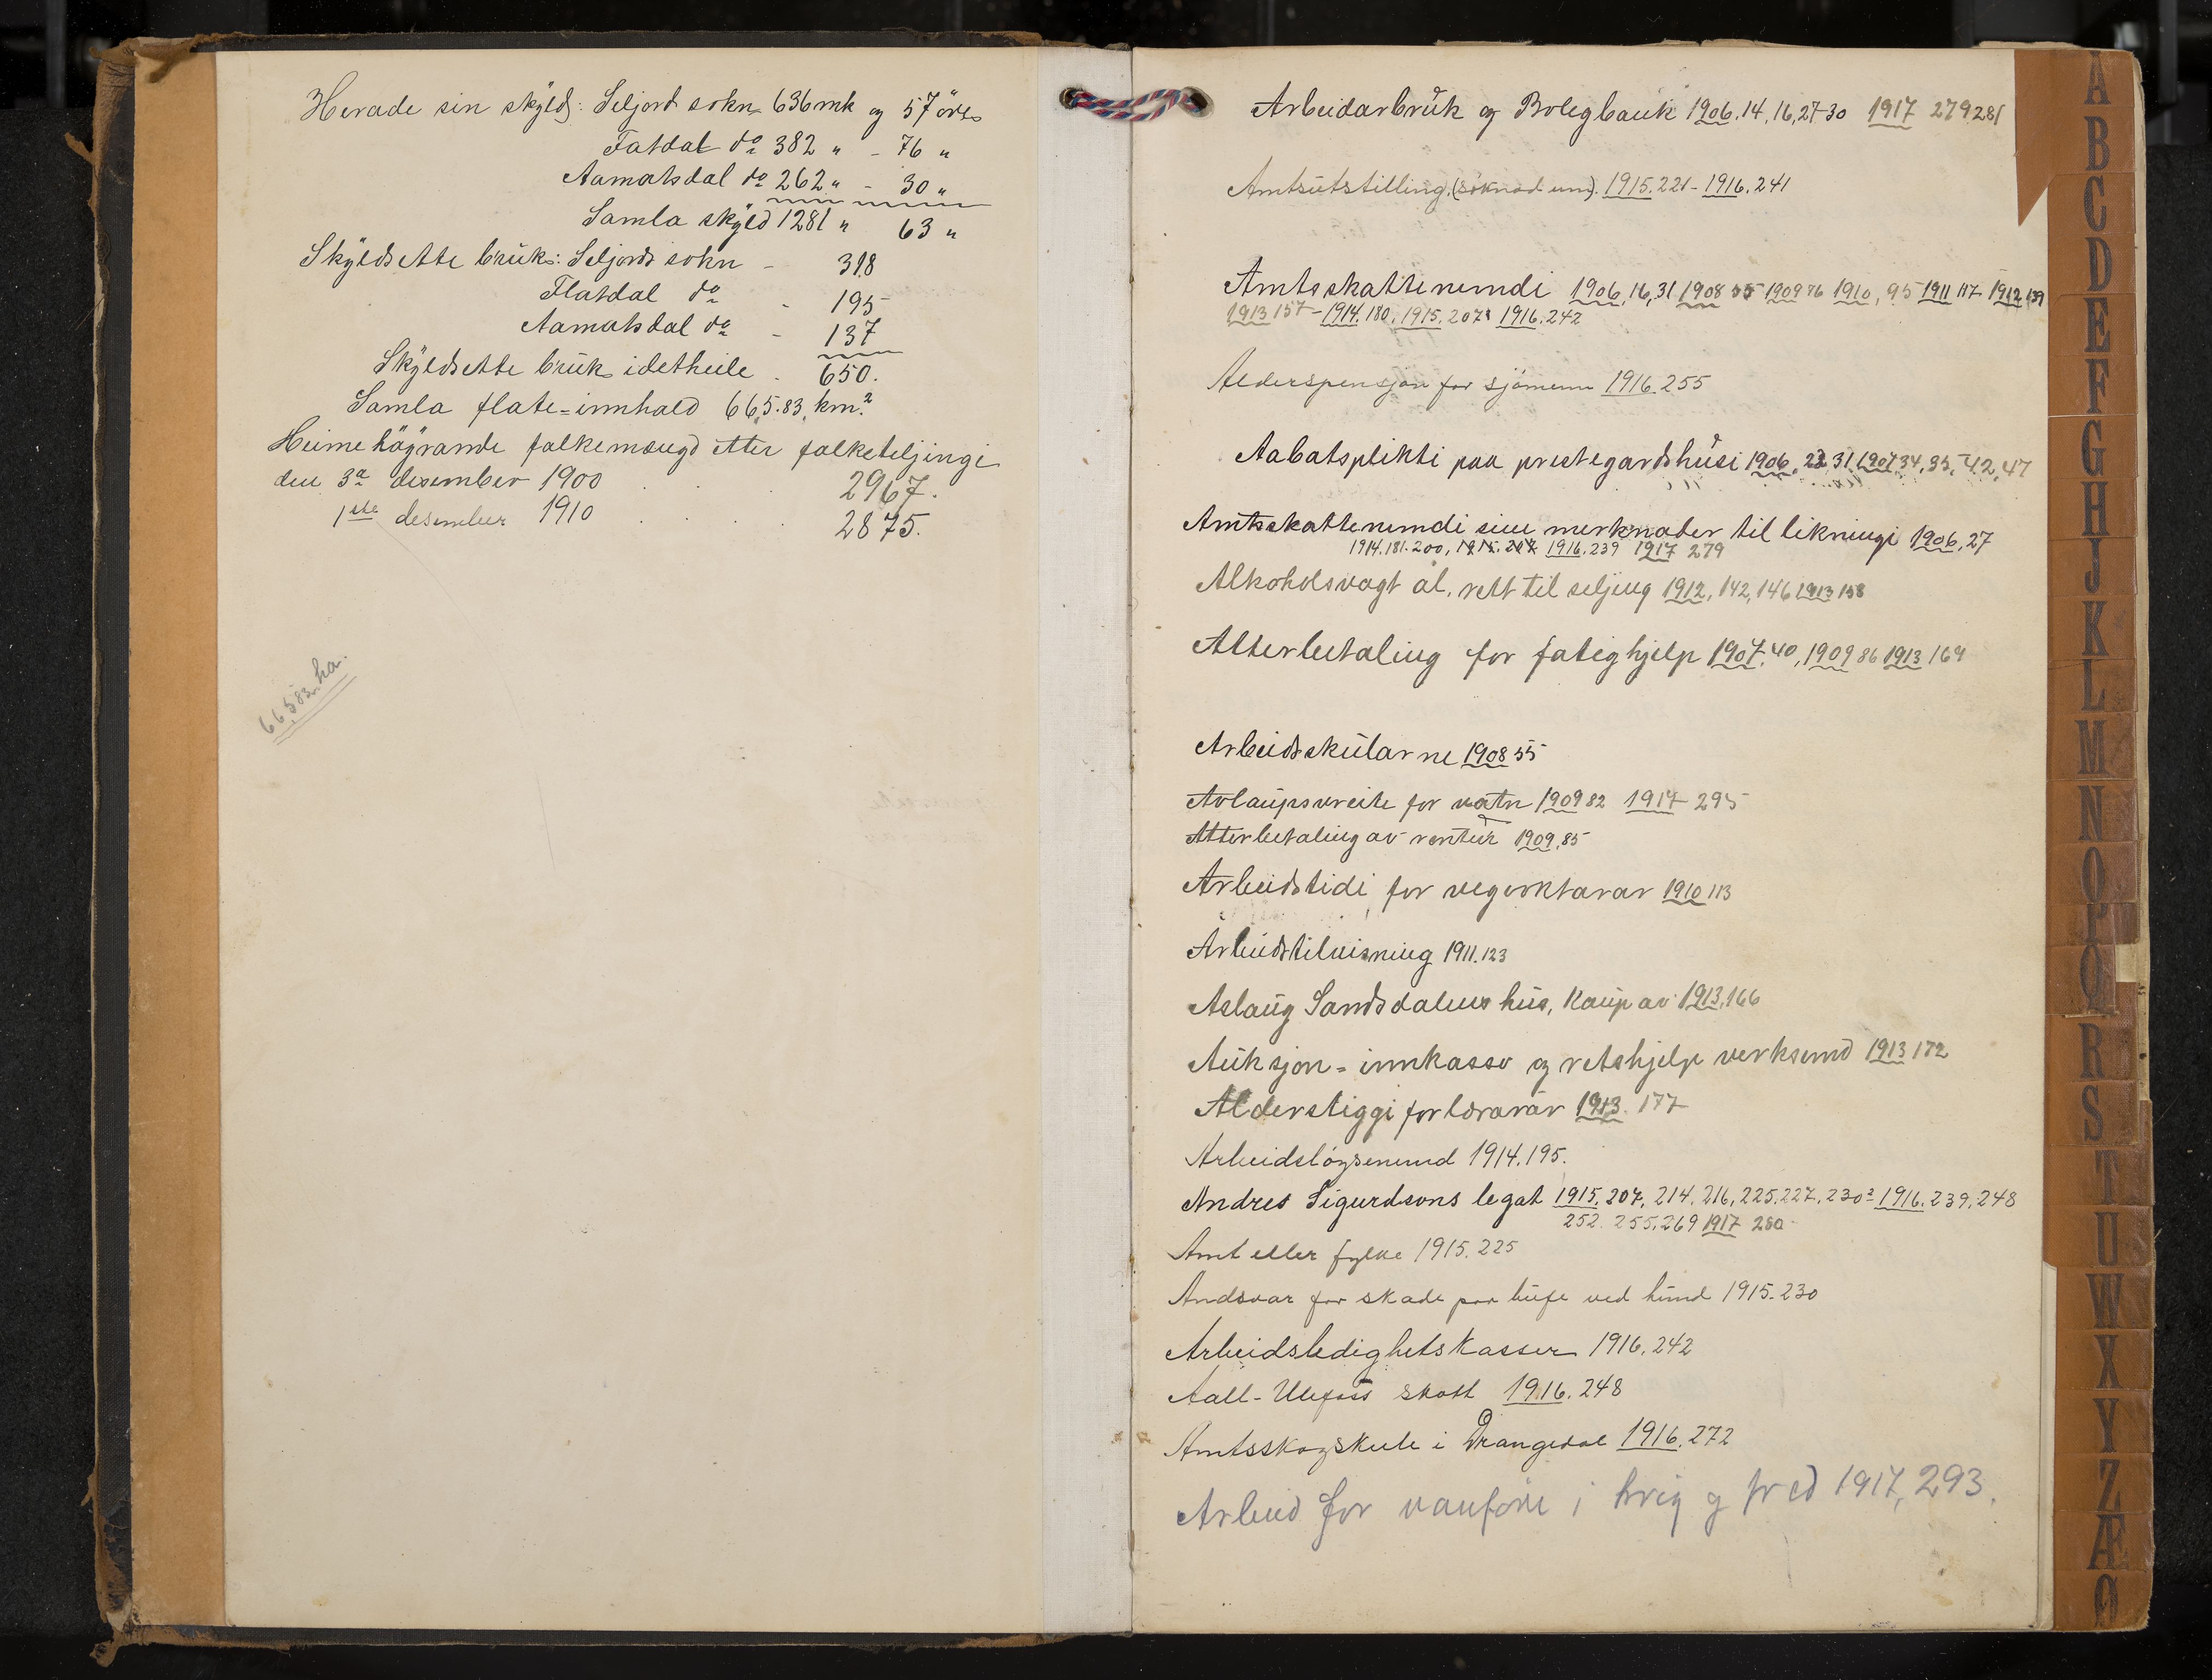 Herade sin skyld: Seljord sokn 636 mk og 57 öre
Fatdal do 382 " - 76 "
Aamotsdal do 262 " - 30 "
Samla skyld 1281 " 63 "
Skyldsette bruk: Seljords sokn - 318
Flatdal do - 195
Aamotsdal do - 137
Skyldsette bruk i detheile - 650.
Samla flate-innhald 665.83 km.2
Heimehöyrande folkemengd etter folketeljingi
den 3a desember 1900 . . . 2967.
1ste desember 1910 . . . . 2875.
66583 ha.
Arbeidarbruk og Bolegbank 1906.14, 16, 27-30 1917 279 281
Amtsutstilling (söknad um). 1915. 221 - 1916. 241
Amtsskattenemdi 1906, 16, 31 1908 55 1909 76 1910, 95 1911 117 1912 139
1913 157 - 1914. 180. 1915. 207 1916. 242
Alderspensjon for sjömenn 1916. 255
Aabotsplikti paa prestegardshusi 1906, 22, 31, 1907 34, 35, 42, 47
Amtsskattenemdi sine merknader til likningi 1906, 27
1914. 181. 200, 1915. 217. 1916. 239 1917 279
Alkoholsvagt öl, rett til seljing 1912, 142, 146 1913 158
Atterbetaling for fatighjelp 1907, 40, 1909 86 1913 169
Arbeidsskularne 1908 55
Avlaupsveite for vatn 1909 82 1917 295
Atterbetaling av rentur 1909, 85
Arbeidstidi for vegvoktarar 1910 113
Arbeidstilvisning 1911. 123
Aslaug Sandsdalens hus, Kaup av 1913, 166
Auksjon- innkasso og retshjelp verksemd 1913 172
Alderstiggi for lærarar 1913. 177
Arbeidslögsenemd 1914. 195.
Andres Sigurdsons legat 1915. 207, 214, 216, 225. 227. 230 1916. 239. 248
252. 255. 269 1917 280
Amt eller fylke 1915. 225
Andsvar for skade paa bufe ved hund 1915. 230
Arbeidsledighetskasser 1916. 242
Aall-Ulefoss skatt 1916. 248
Amtsskogskule i Drangedal 1916. 272
Arbeid for vanföre i krig og fred 1917, 293.
A
B
C
D
E
F
G
H
J
K
L
M
N
O
P
Q
R
S
T
U
W
X
Y
Z
Æ
Ø